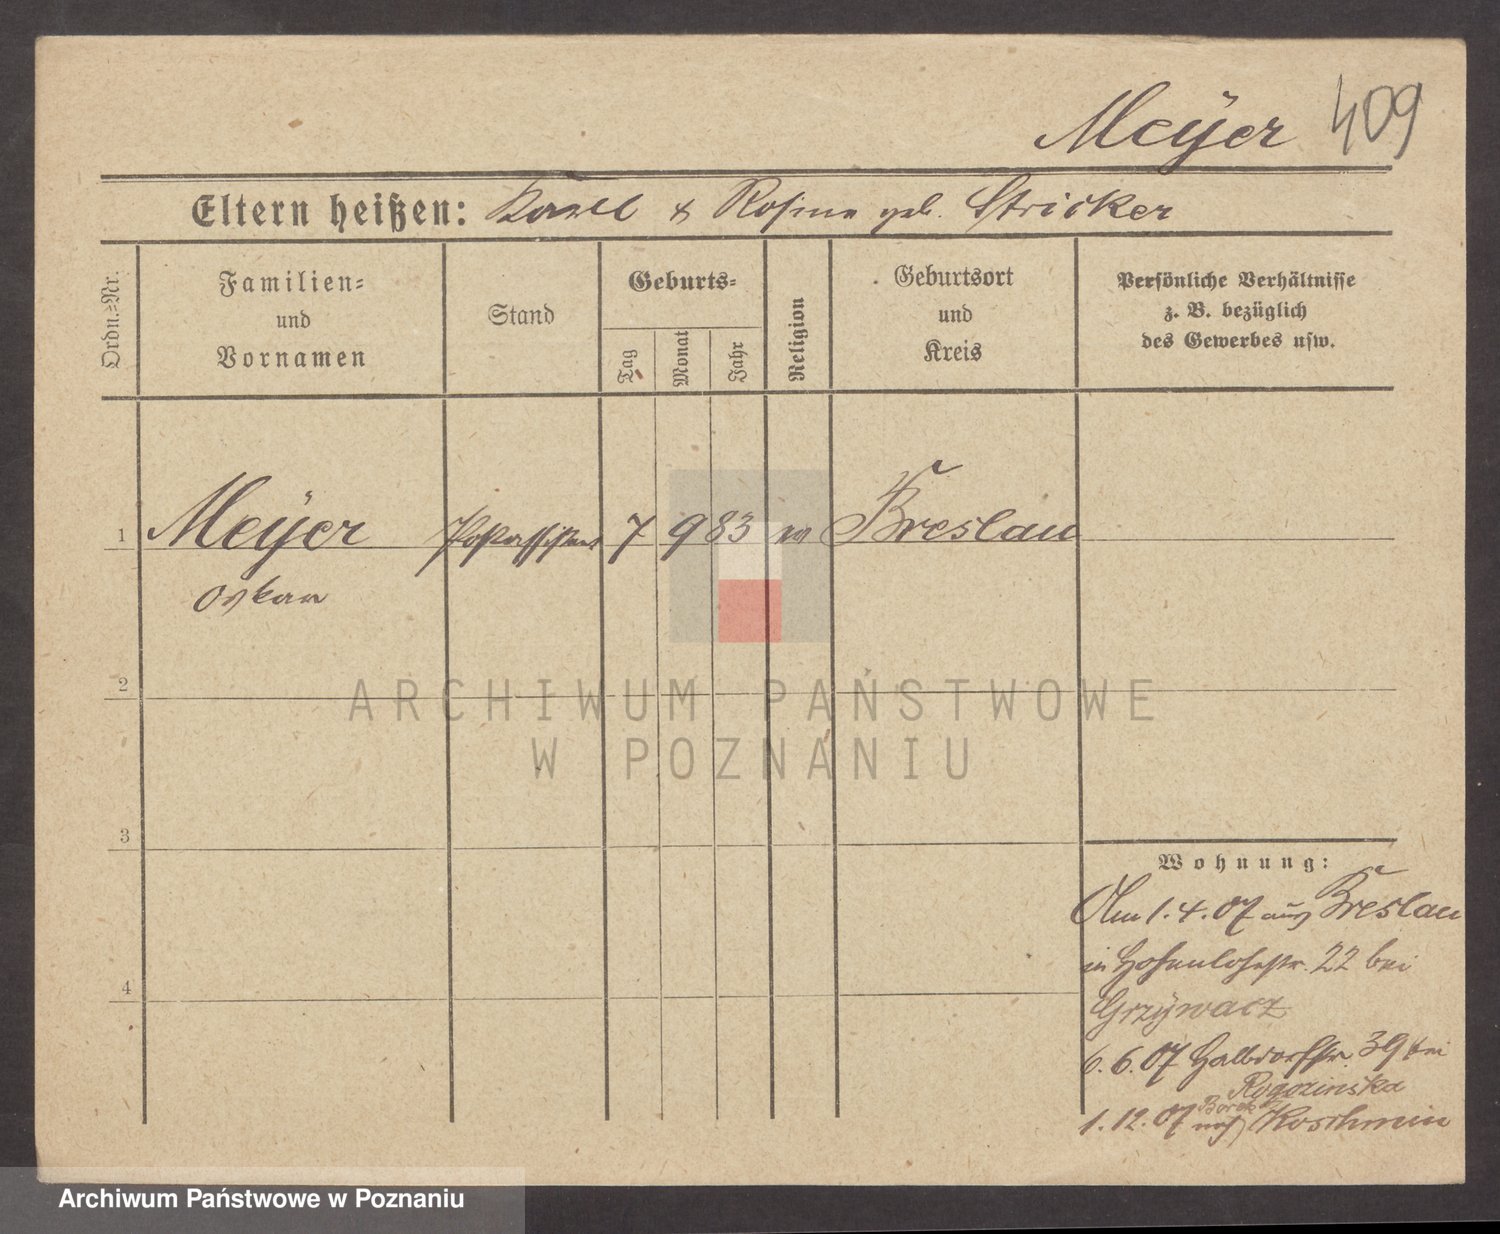 Meÿer 409
Eltern heißen: Karl & Rosina geb. Stricker
Ordn.=Nr.
Familien=
und
Vornamen
Stand
Geburts=
Tag
Monat
Jahr
Religion
Geburtsort
und
Kreis
Persönliche Verhältnisse
z. B. bezüglich
des Gewerbes usw.
1 Meÿer Postassistent 7 9 83 ev Breslau
Oskar
2
3
4
Wohnung:
Am 1.4.07 aus Breslau
in Hohenlohestr. 22 bei
Grzÿwacz
6.6.07 Halbdorfstr. 39 bei
Rogozinska
1.12.07 nach Koschmin
Borek
ARCHIWUM PAŃSTWOWE
W POZNANIU
Archiwum Państwowe w Poznaniu